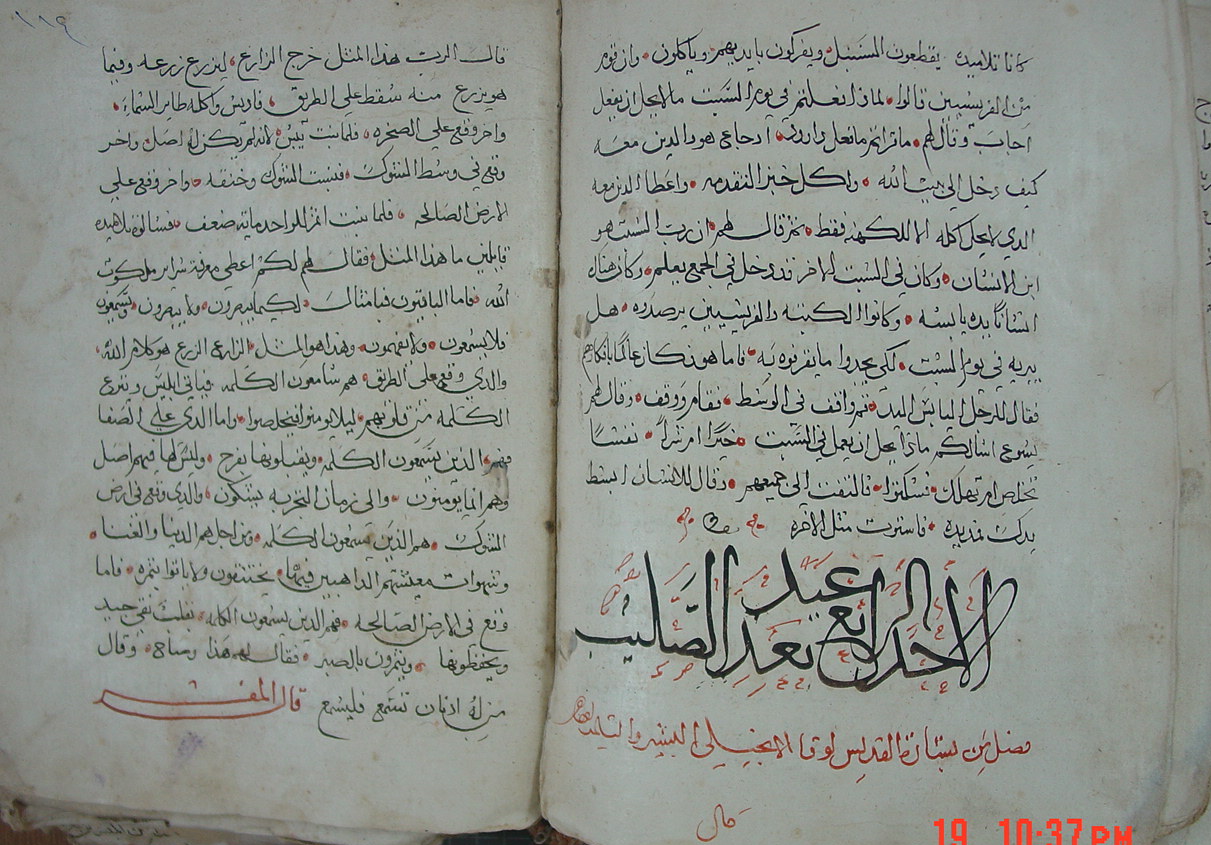 كانا تلاميده يقطعون السنبل ويفركون بايديهم وياكلون وان قوم
من الفريسيين قالوا لماذا تفعلتم في يوم السبت ما لا يحل ان يفعل
اجاب وقال لهم ما قراتم ما فعل داوود اد جاع هو والدين معه
كيف دخل الي بيت الله واكل خبز التقدمه واعطا الدين معه
الدي لا يحل اكله الا للكهنه فقط ثم قال لهم ان رب السبت هو
ابن الانسان وكان في السبت الاخر قد دخل في الجمع يعلم وكان هناك
انسانا يده يابسه وكانوا الكتبه والفريسيين يرصدوه هل
يبريه في يوم السبت لكي يجدوا ما يقرفوه به فاما هو فكان عالما بافكارهم
فقال للرجل اليابس اليد قم واقف في الوسط فقام ووقف وقال لهم
يسوع اسالكم مادا يحل ان يعمل في السبت خيرا ام شرا نفسا
تخلص ام تهلك فسكتوا فالتفت الي جميعهم وقال للانسان ابسط
يدك فمديده فاستوت مثل الاخره
الاحد الرابع بعد عيد الصليب
فصل من بشارة القديس لوقا الانجيلي البشير والتلميد الطاهر
قال
١١٩
قال الرب هدا المثل خرج الزارع ليزرع زرعه وفيما
هو يزرع منه سقط علي الطريق فاديس واكله طاير السماء
واخر وقع علي الصخره فلما نبت يبس لانه لم يكن له اصل واخر
وقع في وسط الشوك فنبت الشوك وخنقه واخر وقع علي
الارض الصالحه فلما نبت اثمر للواحد ماية ضعف فسالوه تلاميده
قايلين ما هدا المثل فقال لهم لكم اعطي معرفة سراير ملكوت
الله فاما الباقيون فبامثال لكيما يبصرون ولا يبصرون ويسمعون
فلا يسمعون ولا يفهمون وهدا هو المثل الزارع الزرع هو كلام الله
والدي وقع علي الطريق هم سامعون الكلمه فياتي ابليس وينزع
الكلمه من قلوبهم ليلا يومنوا فيخلصوا واما الدي علي الصفا
فهم الدين يسمعون الكلمه ويقبلونها بفرح وليس لها فيهم اصل
وهم انما يومنون والي زمان التجربه يشكون والدي وقع في ارض
الشوك هم الدين يسمعون الكلمه ومن اجل هم الدنيا والغنا
وشهوات معيشتهم الداهبين فيها يختنقون ولا ياتوا بثمره فاما
وقع في الارض الصالحه فهم الدين يسمعون الكلمه بقلب نقي جيد
ويحفظونها ويثمرون بالصبر فقال لهم هدا وصاح وقال
من له ادنان تسمع فليسمع قال المفسر
19 10:37 PM